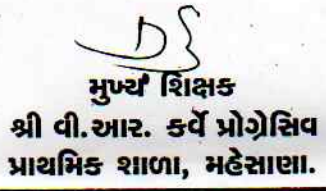 મુખ્ય શિક્ષક
શ્રી વી.આર. કર્વે પ્રોગ્રેસિવ
પ્રાથમિક શાળા, મહેસાણા.